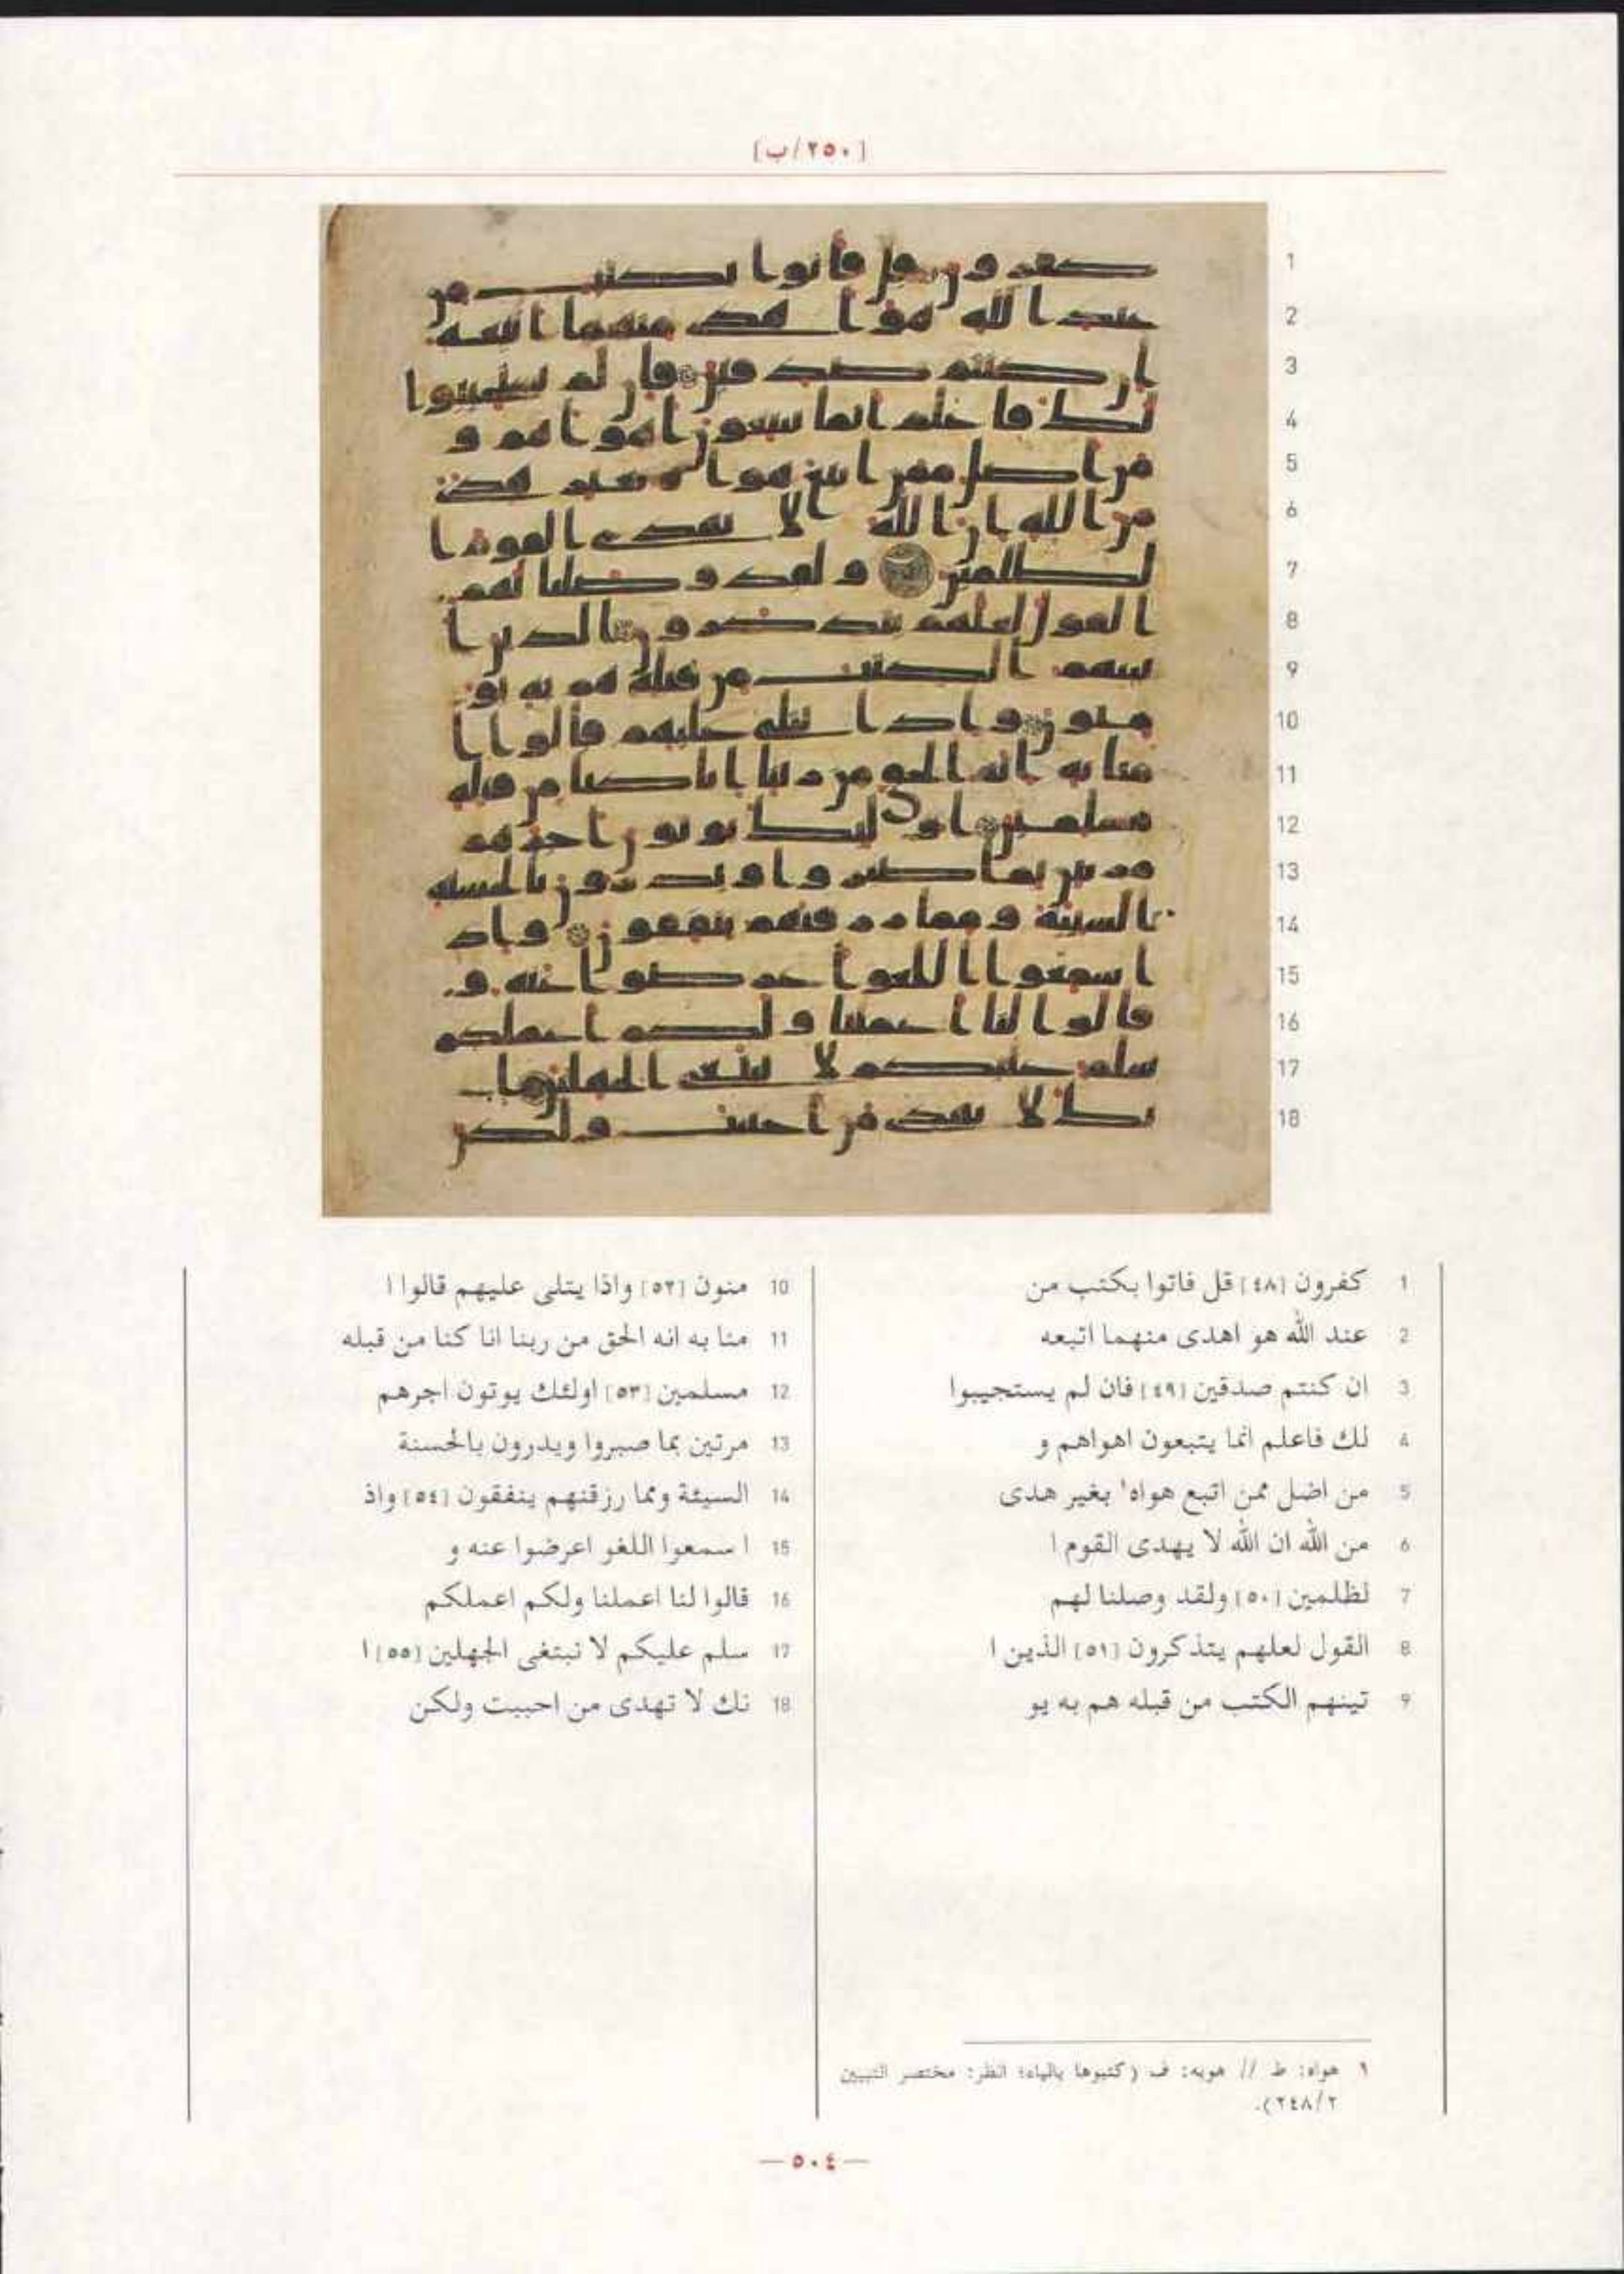 [٢٥٠/ب]
1 كفرون [٤٨] قل فاتوا بكتب من
2 عند الله هو اهدى منهما اتبعه
3 ان كنتم صدقين [٤٩] فان لم يستجيبوا
4 لك فاعلم انما يتبعون اهواهم و
5 من اضل ممن اتبع هواه' بغير هدى
6 من الله ان الله لا يهدى القوم ا
7 لظلمين [٥٠] ولقد وصلنا لهم
8 القول لعلهم يتذكرون [٥١] الذين ا
9 تينهم الكتب من قبله هم به يو
10 منون [٥٢] واذا يتلى عليهم قالوا ا
11 منا به انه الحق من ربنا انا كنا من قبله
12 مسلمين [٥٣] اولئك يوتون اجرهم
13 مرتين بما صبروا ويدرون بالحسنة
14 السيئة ومما رزقنهم ينفقون [٥٤] واذ
15 ا سمعوا اللغو اعرضوا عنه و
16 قالوا لنا اعملنا ولكم اعملكم
17 سلم عليكم لا نبتغى الجهلين [٥٥] ا
18 نك لا تهدى من احببت ولكن
١ هواه: ط // هويه: ف (كتبوها بالياء؛ انظر: مختصر التبيين
٢٤٨/٢).
— ٥٠٤ —